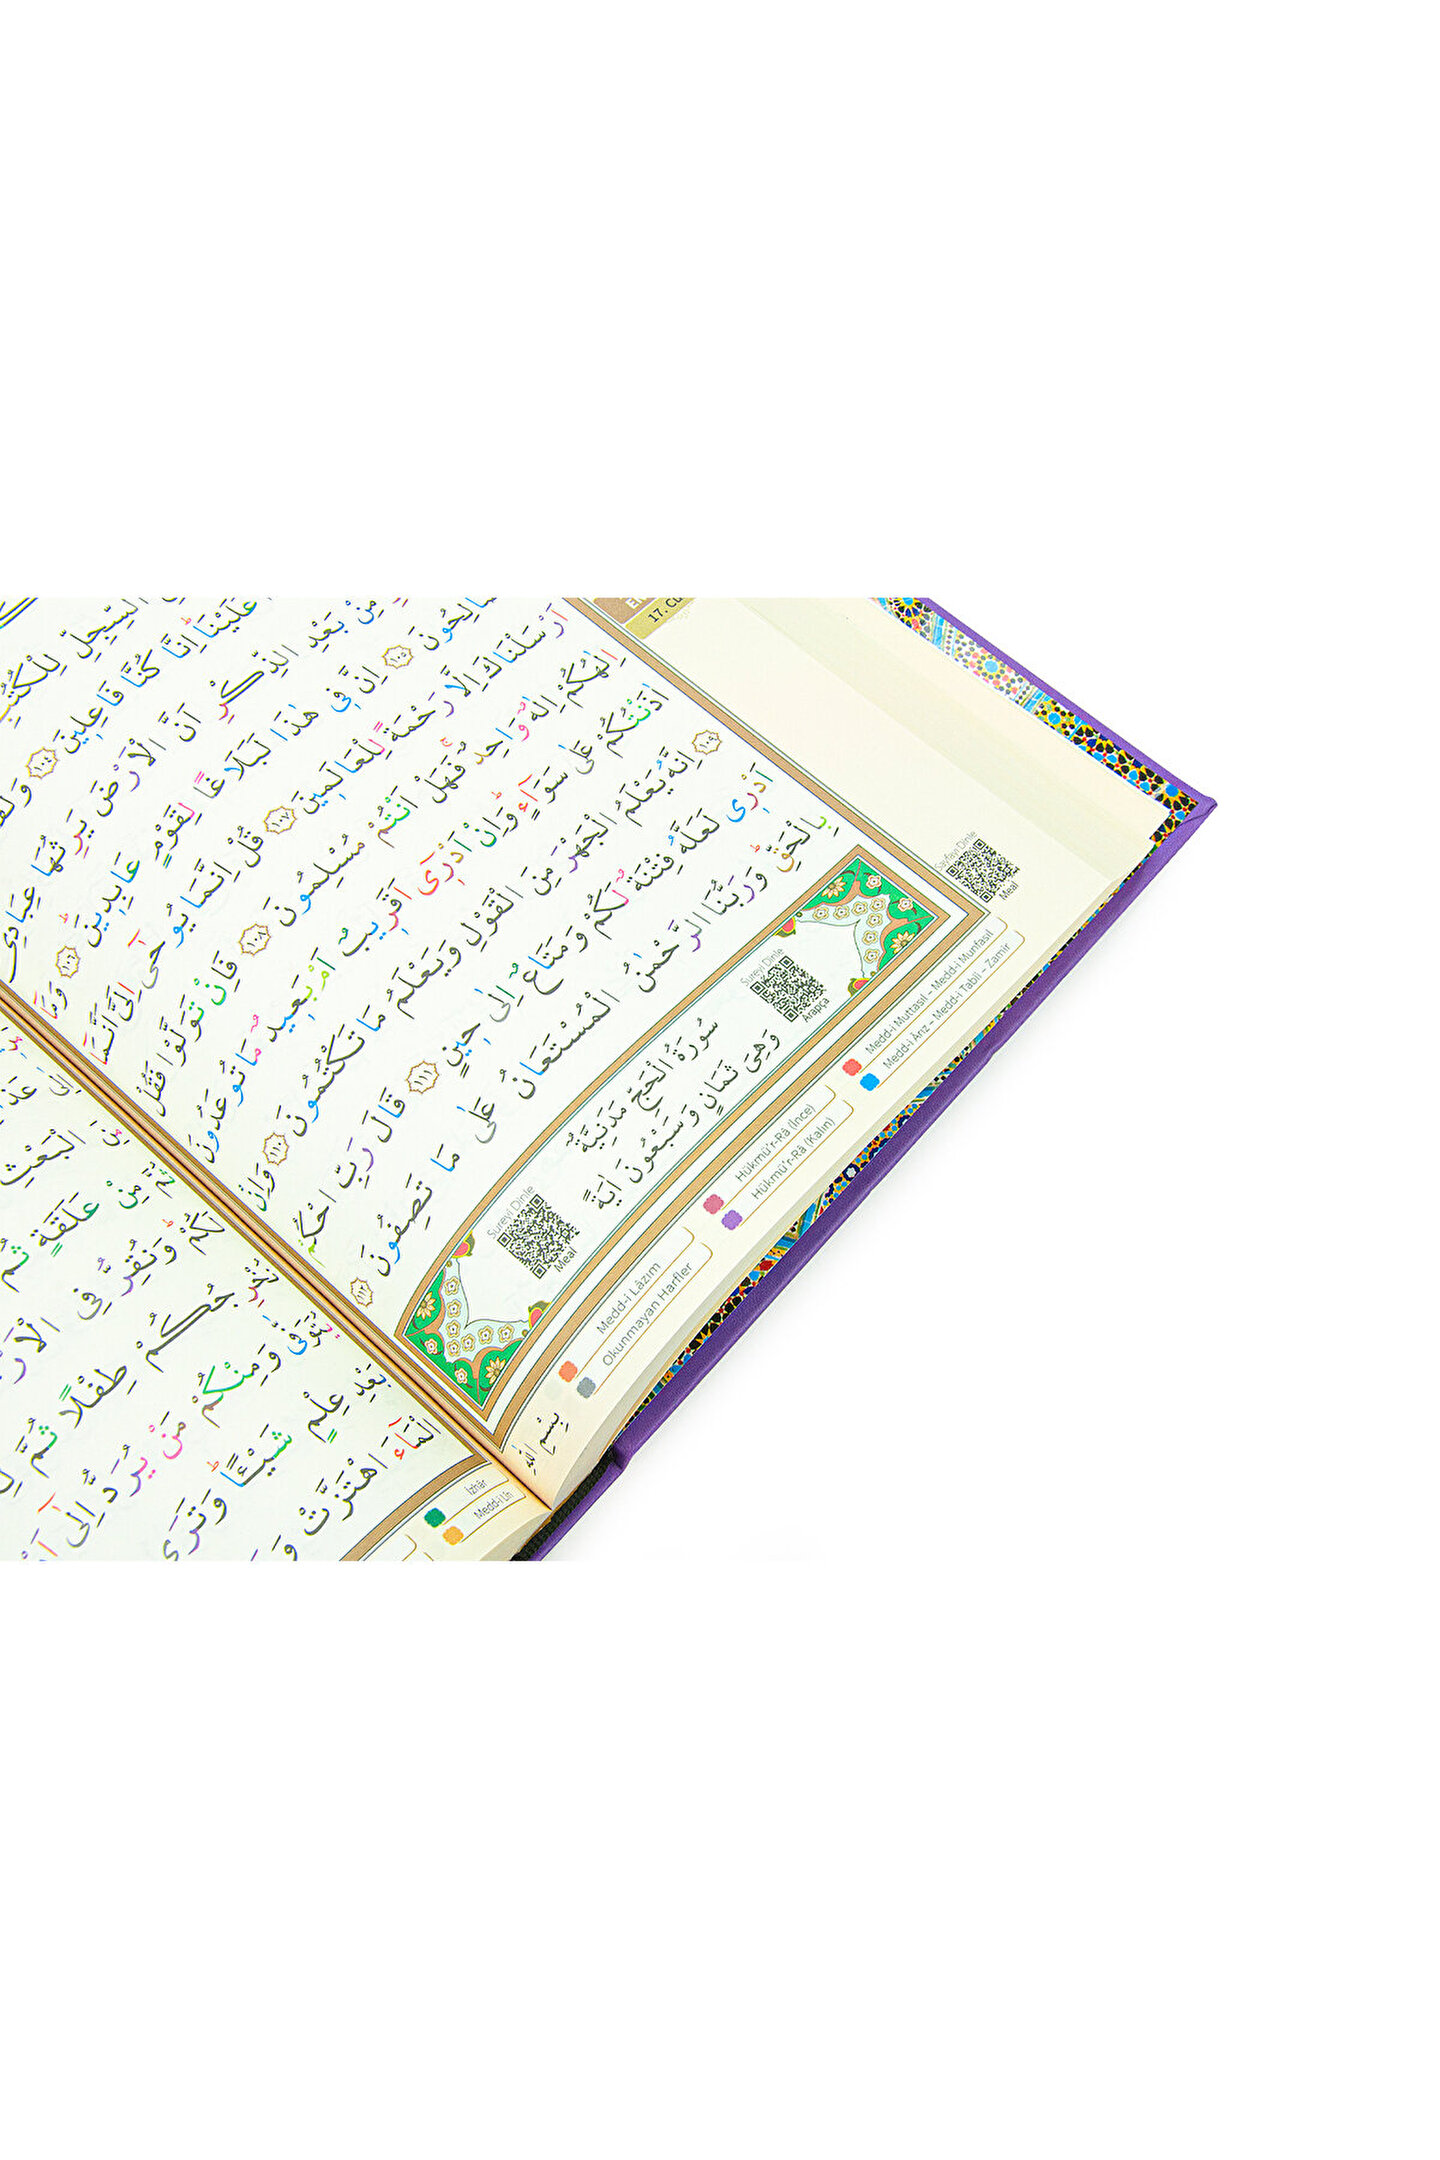 السِّجِلِّ لِلْكُتُبِ
عَلَيْنَا اِنَّا كُنَّا فَاعِلِينَ ﴿١٠٤﴾
مِنْ بَعْدِ الذِّكْرِ اَنَّ الْاَرْضَ يَرِثُهَا عِبَادِىَ
اِنَّ فِى هٰذَا لَبَلَاغًا لِقَوْمٍ عَابِدِينَ ﴿١٠٦﴾ وَمَٓا
اَرْسَلْنَاكَ اِلَّا رَحْمَةً لِلْعَالَمِينَ ﴿١٠٧﴾ قُلْ اِنَّمَا يُوحٰٓى اِلَىَّ اَنَّمَٓا
اِلٰهُكُمْ اِلٰهٌ وَاحِدٌ فَهَلْ اَنْتُمْ مُسْلِمُونَ ﴿١٠٨﴾ فَاِنْ تَوَلَّوْا فَقُلْ
اٰذَنْتُكُمْ عَلٰى سَوَٓاءٍ وَاِنْ اَدْرِٓى اَقَرِيبٌ اَمْ بَعِيدٌ مَا تُوعَدُونَ
﴿١٠٩﴾ اِنَّهُ يَعْلَمُ الْجَهْرَ مِنَ الْقَوْلِ وَيَعْلَمُ مَا تَكْتُمُونَ ﴿١١٠﴾ وَاِنْ
اَدْرِى لَعَلَّهُ فِتْنَةٌ لَكُمْ وَمَتَاعٌ اِلٰى حِينٍ ﴿١١١﴾ قَالَ رَبِّ احْكُمْ
بِالْحَقِّ وَرَبُّنَا الرَّحْمٰنُ الْمُسْتَعَانُ عَلٰى مَا تَصِفُونَ ﴿١١٢﴾
Sureyi Dinle
Arapça
سُورَةُ الْحَجِّ مَدَنِيَّةٌ
وَهِىَ ثَمَانٍ وَسَبْعُونَ اٰيَةً
Sureyi Dinle
Meal
Sayfayı Dinle
Meal
Medd-i Muttasıl – Medd-i Munfasıl
Medd-i Ânz – Medd-i Tabiî – Zamir
Hükmü'r-Râ (İnce)
Hükmü'r-Râ (Kalın)
Medd-i Lâzım
Okunmayan Harfler
بِسْمِ اللّٰهِ
17. Cü
الْبَعْثِ
ثُمَّ مِنْ عَلَقَةٍ ثُمَّ
لَكُمْ وَنُقِرُّ فِى
نُخْرِجُكُمْ طِفْلًا ثُمَّ
يُتَوَفّٰى وَمِنْكُمْ مَنْ يُرَدُّ اِلٰٓى
بَعْدِ عِلْمٍ شَيْـًٔا وَتَرَى
الْمَٓاءَ اهْتَزَّتْ
İzhâr
Medd-i Lîn